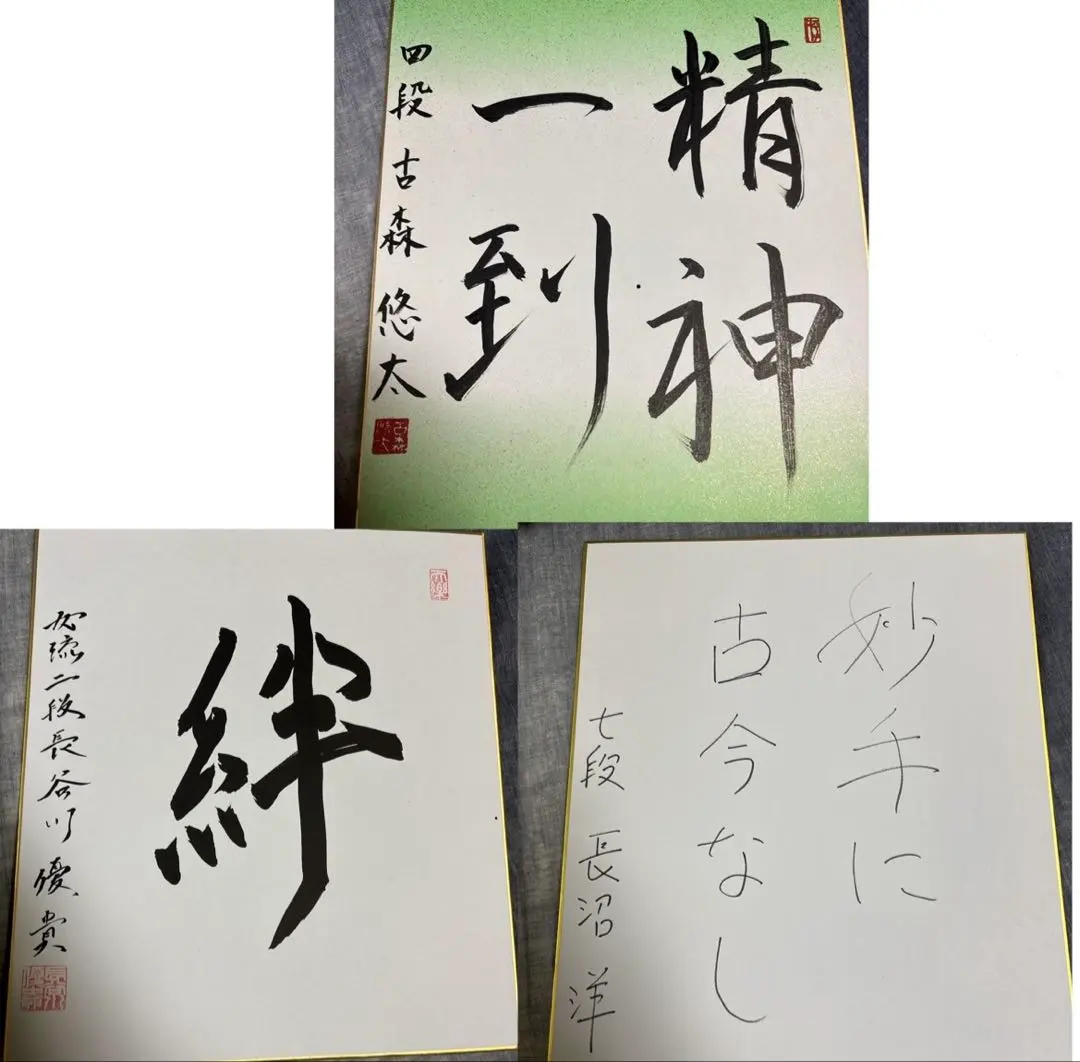 精神
一到
四段 古森 悠太
絆
女流二段 長谷川 優貴
妙手に
古今なし
七段 長沼 洋